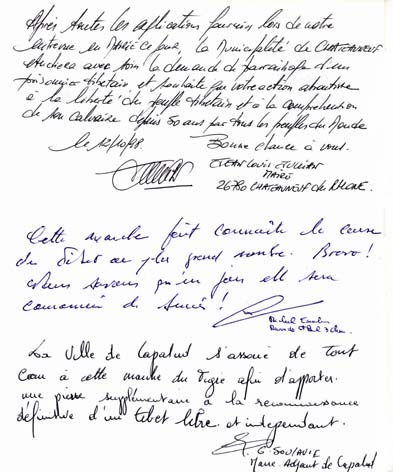 Après toutes les explications fournies lors de notre
entrevue en Mairie ce jour, la Municipalité de CHATEAUNEUF
étudiera avec soin la demande de parrainage d'un
prisonnier tibétain et souhaite que votre action aboutisse
à la liberté du peuple tibétain et à la compréhension
de son calvaire depuis 50 ans par tous les peuples du Monde
le 12/10/98. Bonne chance à vous.
JEAN LOUIS JULLIEN
MAIRE
26780 CHATEAUNEUF du RHONE.
Cette marche fait connaître la cause
du Tibet au plus grand nombre. Bravo!
nous savons qu'un jour elle sera
couronnée de succès!
Michel
La Ville de Lapalud s'associe de tout
Cœur à cette marche du Tigre afin d'apporter
une pierre supplémentaire à la reconnaissance
définitive d'un Tibet libre et indépendant.
G. SOULAVIE
Maire-Adjoint de Lapalud